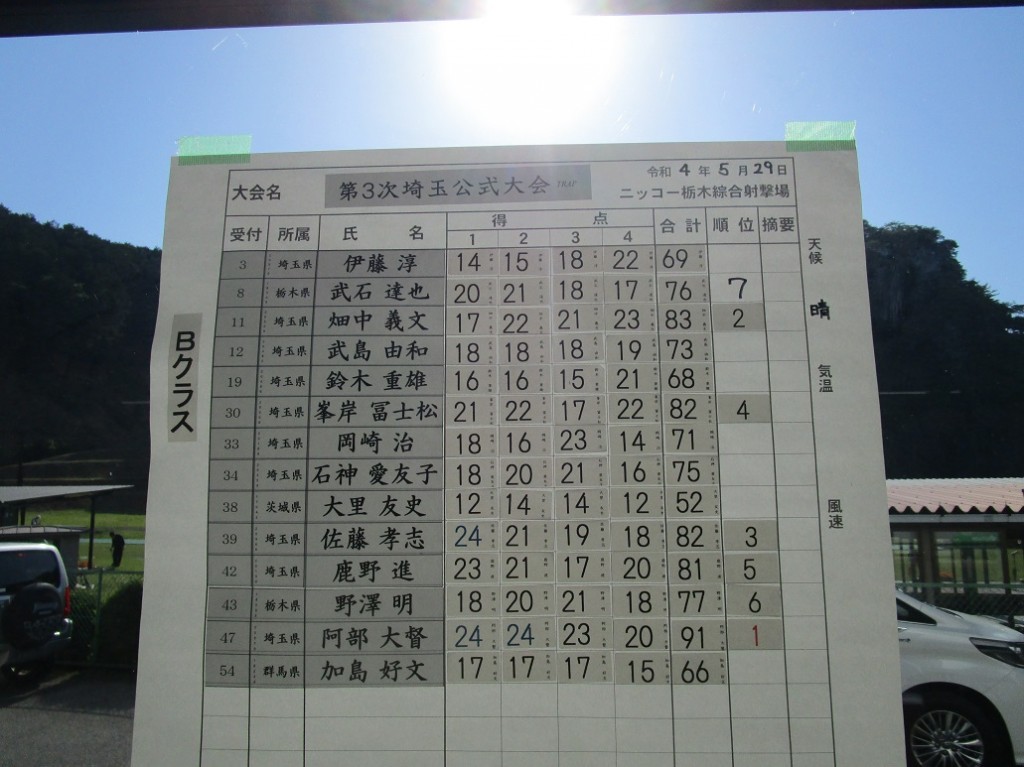 令和 4 年 5 月 29 日
大会名 第3次埼玉公式大会 TRAP ニッコー栃木綜合射撃場
受付 所属 氏名 得点 合計 順位 摘要
1 2 3 4
3 埼玉県 伊藤 淳 14 15 18 22 69
8 栃木県 武石 達也 20 21 18 17 76 7
11 埼玉県 畑中 義文 17 22 21 23 83 2
12 埼玉県 武島 由和 18 18 18 19 73
19 埼玉県 鈴木 重雄 16 16 15 21 68
30 埼玉県 峯岸 冨士松 21 22 17 22 82 4
33 埼玉県 岡崎 治 18 16 23 14 71
34 埼玉県 石神 愛友子 18 20 21 16 75
38 茨城県 大里 友史 12 14 14 12 52
39 埼玉県 佐藤 孝志 24 21 19 18 82 3
42 埼玉県 鹿野 進 23 21 17 20 81 5
43 栃木県 野澤 明 18 20 21 18 77 6
47 埼玉県 阿部 大督 24 24 23 20 91 1
54 群馬県 加島 好文 17 17 17 15 66
Bクラス
天候
晴
気温
風速